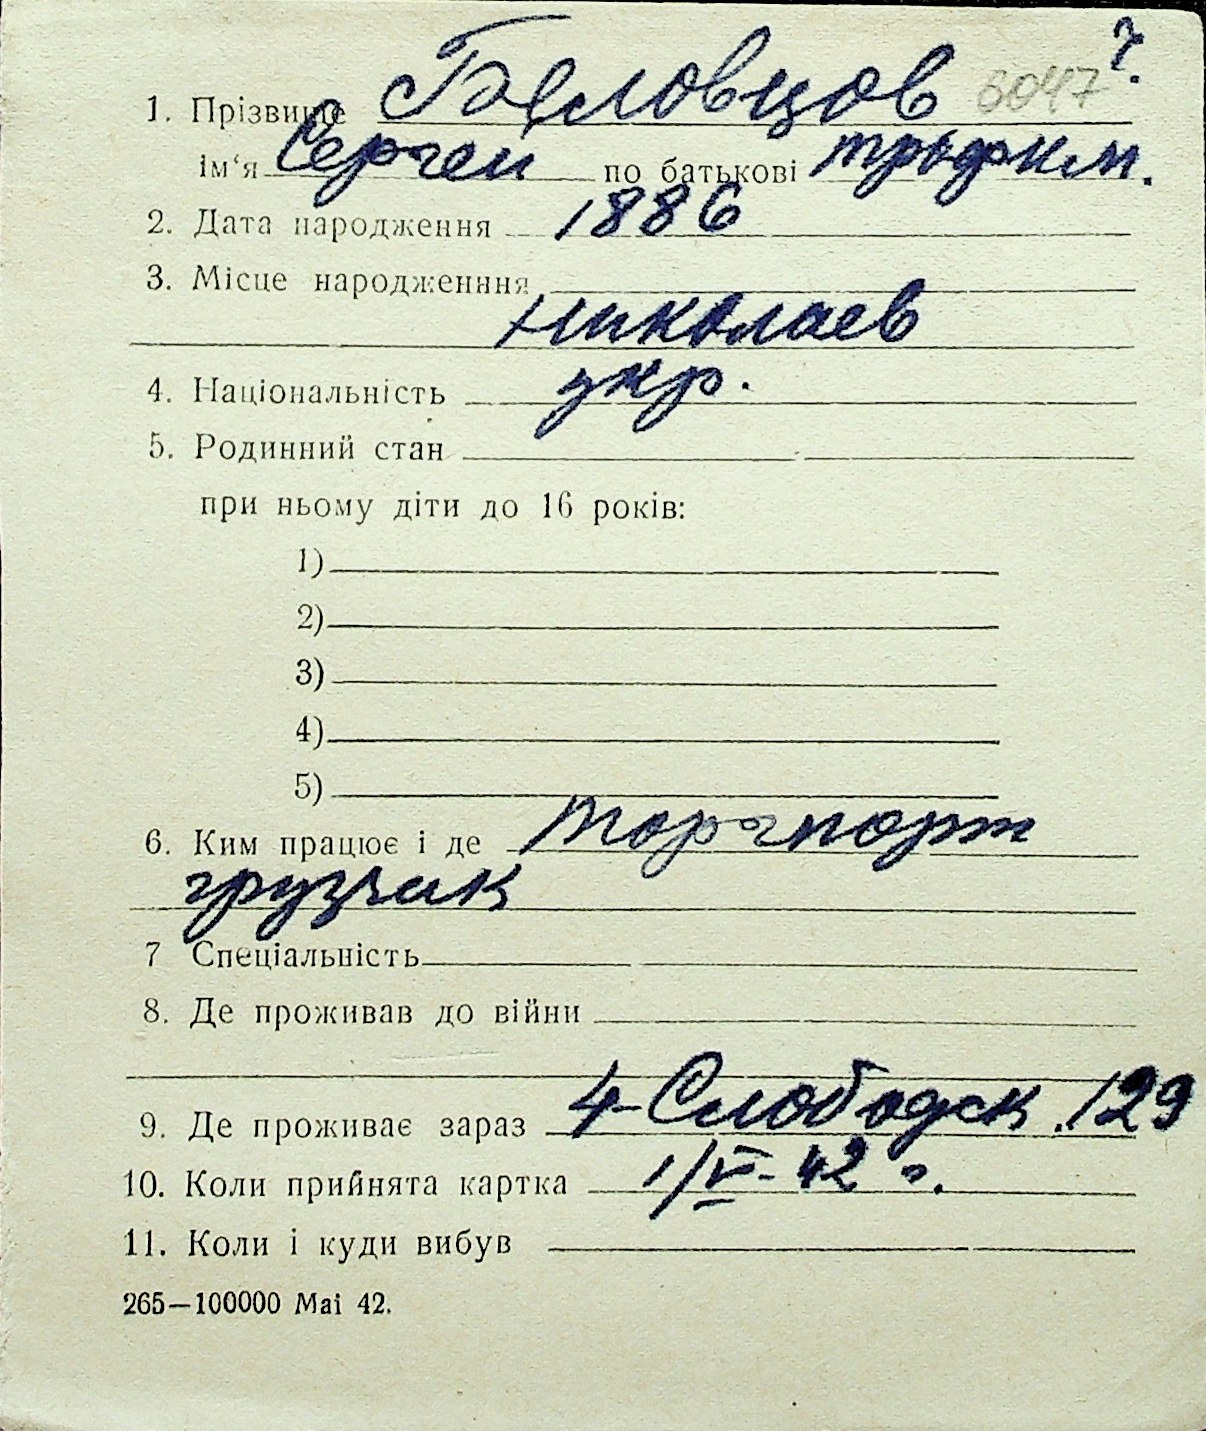 ч.
1. Прізвище Беловцов 6047
ім‘я Сергей по батькові трофим.
2. Дата народження 1886
3. Місце народженння
Николаев
4. Національність укр.
5. Родинний стан
при ньому діти до 16 років:
1)
2)
3)
4)
5)
6. Ким працює і де Торгпорт
грузчик
7 Спеціальність
8. Де проживав до війни
9. Де проживає зараз 4-Слободск. 129
10. Коли прийнята картка 1/V-42 г.
11. Коли і куди вибув
265—100000 Mai 42.